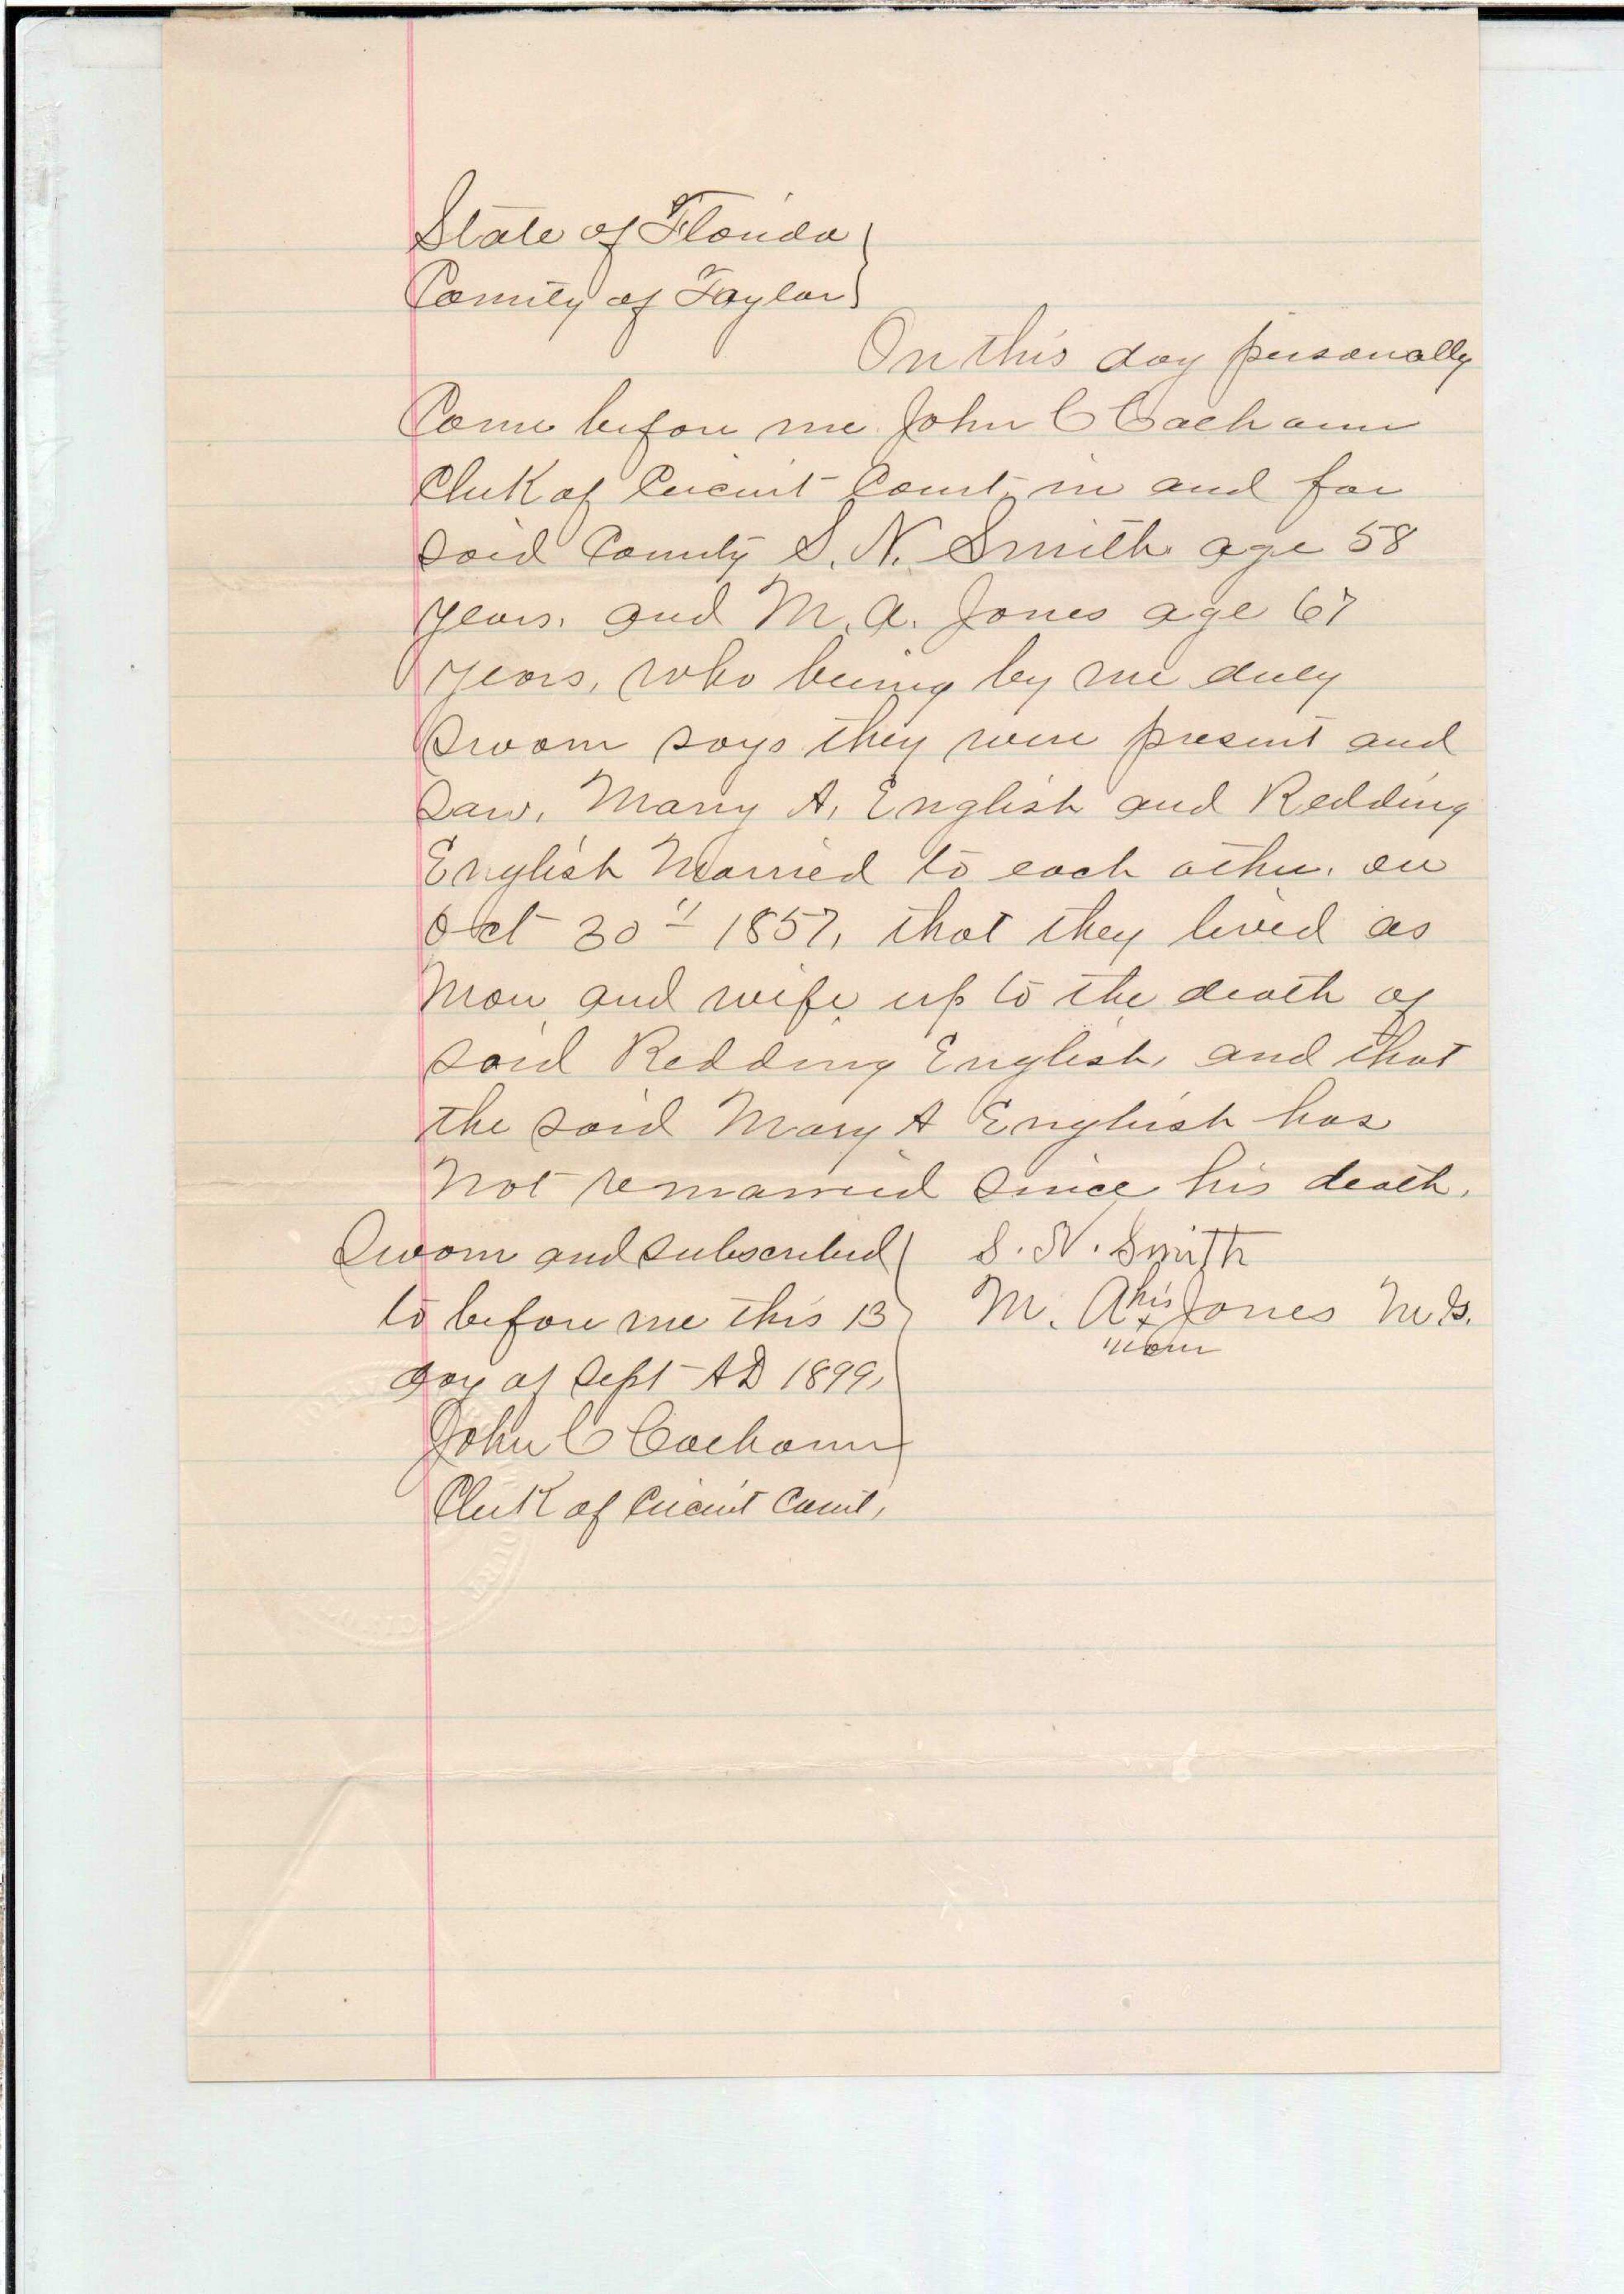 State of Florida }
County of Taylor }
On this day personally
Come before me John C Calhoun
Clerk of Circuit Court in and for
said County S. N. Smith age 58
years. and M. A. Jones age 67
years, who being by me duly
Sworn says they were present and
Saw, Marry A, English and Redding
English Married to each other. on
Oct 30" 1857, that they lived as
Man and wife up to the death of
said Redding English, and that
the said Mary A English has
Not remarried since his death.
Sworn and subscribed } S. N. Smith
to before me this 13 } M. A his x mark Jones
day of Sept AD 1899, }
John C Calhoun
Clerk of Circuit Court,